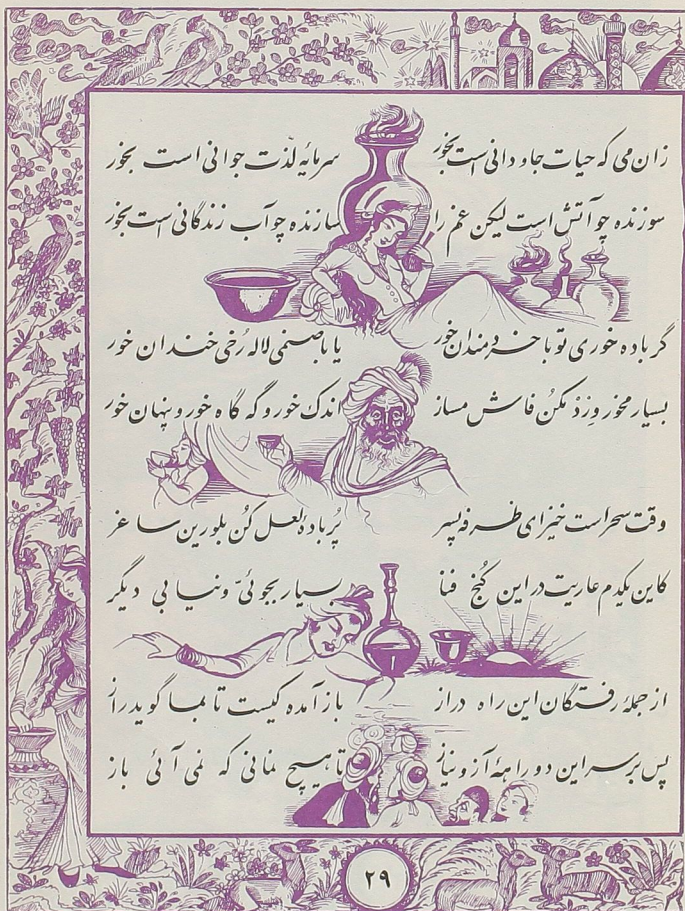 زان می که حیات جاودانی است بخور سرمایهٔ لذّت جوانی است بخور
سوزنده چو آتش است لیکن غم را سازنده چو آب زندگانی است بخور
گر باده خوری تو با خردمندان خور یا با صنمی لاله رُخی خندان خور
بسیار مخور وِرْدْ مکنُ فاش مساز اندک خور و گه گاه خور و پنهان خور
وقت سحر است خیز ای طرفه پسر پُر بادهٔ لعل کُن بلورین ساغر
کاین یکدم عاریت در این کُنج فنا بسیار بجوئیّ و نیابی دیگر
از جملهٔ رفتگان این راه دراز باز آمده کیست تا بما گوید راز
پس بر سر این دو راههٔ آز و نیاز تا هیچ نمانی که نمی آئی باز
۲۹